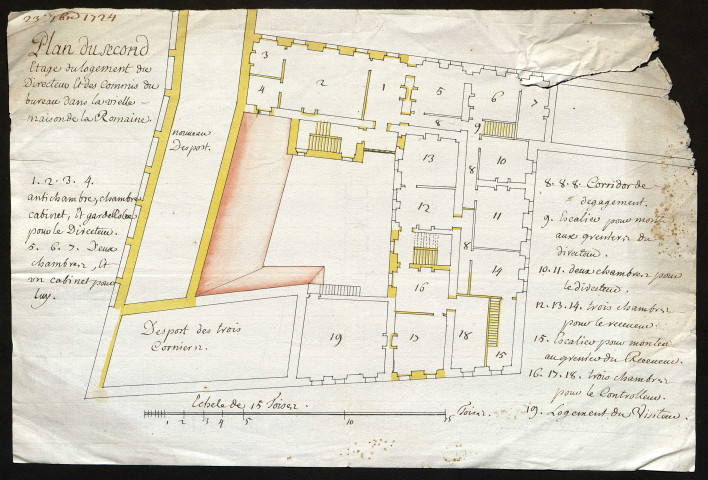 23 7bre 1724
Plan du second
Etage du logement du
Directeur Et des Commis du
bureau dans la vielle
maison de la Romaine.
1. 2. 3. 4.
antichambre, chambre
cabinet, Et garderobe
pour le Directeur.
5. 6. 7. Deux
chambres, Et
un cabinet pour
luy.
nouveau
Desport.
Desport des trois
Corniers
3
4
2
1
5
6
7
8
9
13
8
10
12
11
8
14
16
19
17
18
15
8. 8. 8. Corridor de
degagement.
9. Escalier pour mont
aux greniers du
directeur.
10. 11. deux chambres pour
le directeur.
12. 13. 14. trois chambres
pour le receveur.
15. Escalier pour monter
au grenier du Receveur
16. 17. 18. trois chambres
pour le Controlleur.
19. Logement du Visiteur.
Echele de 15 Toises
1 2 3 4 5 10 15 Toises